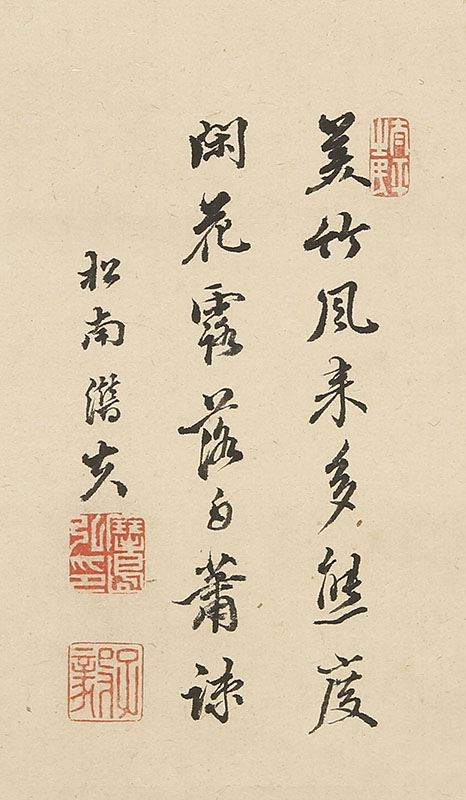 美竹風来多態度
閑花露落自蕭踈
松南潜夫